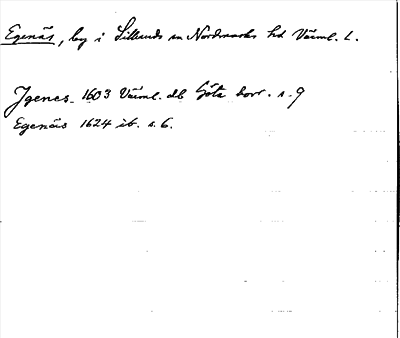 Egenäs, by i Silleruds sn Nordmarks hd Värml. l.
Igenes 1603 Värml. db Göta hovr. s. 9
Egenäs 1624 ib. s. 6.